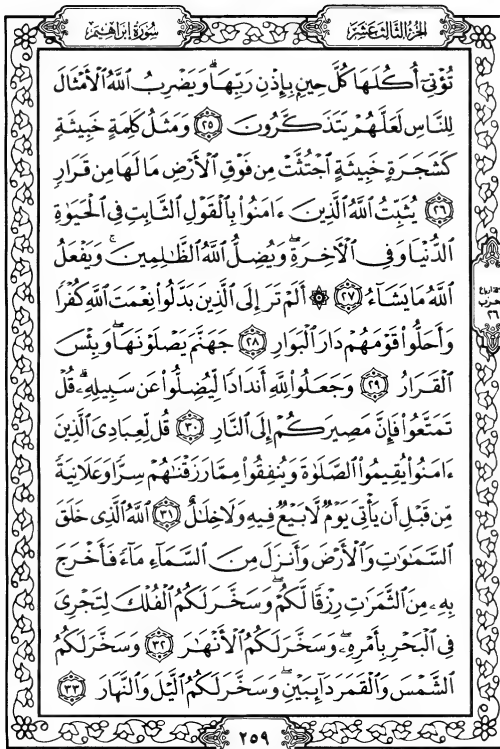 سُورَةُ إِبْرَاهِيمَ الجُزْءُ الثَّالِثَ عَشَرَ
تُؤْتِىٓ أُكُلَهَا كُلَّ حِينٍۭ بِإِذْنِ رَبِّهَاۗ وَيَضْرِبُ ٱللَّهُ ٱلْأَمْثَالَ
لِلنَّاسِ لَعَلَّهُمْ يَتَذَكَّرُونَ ٢٥ وَمَثَلُ كَلِمَةٍ خَبِيثَةٍ
كَشَجَرَةٍ خَبِيثَةٍ ٱجْتُثَّتْ مِن فَوْقِ ٱلْأَرْضِ مَا لَهَا مِن قَرَارٍ
٢٦ يُثَبِّتُ ٱللَّهُ ٱلَّذِينَ ءَامَنُوا۟ بِٱلْقَوْلِ ٱلثَّابِتِ فِى ٱلْحَيَوٰةِ
ٱلدُّنْيَا وَفِى ٱلْءَاخِرَةِۖ وَيُضِلُّ ٱللَّهُ ٱلظَّٰلِمِينَۚ وَيَفْعَلُ
ٱللَّهُ مَا يَشَآءُ ٢٧ ۞ أَلَمْ تَرَ إِلَى ٱلَّذِينَ بَدَّلُوا۟ نِعْمَتَ ٱللَّهِ كُفْرًا
وَأَحَلُّوا۟ قَوْمَهُمْ دَارَ ٱلْبَوَارِ ٢٨ جَهَنَّمَ يَصْلَوْنَهَاۖ وَبِئْسَ
ٱلْقَرَارُ ٢٩ وَجَعَلُوا۟ لِلَّهِ أَندَادًا لِّيُضِلُّوا۟ عَن سَبِيلِهِۦۗ قُلْ
تَمَتَّعُوا۟ فَإِنَّ مَصِيرَكُمْ إِلَى ٱلنَّارِ ٣٠ قُل لِّعِبَادِىَ ٱلَّذِينَ
ءَامَنُوا۟ يُقِيمُوا۟ ٱلصَّلَوٰةَ وَيُنفِقُوا۟ مِمَّا رَزَقْنَٰهُمْ سِرًّا وَعَلَانِيَةً
مِّن قَبْلِ أَن يَأْتِىَ يَوْمٌ لَّا بَيْعٌ فِيهِ وَلَا خِلَٰلٌ ٣١ ٱللَّهُ ٱلَّذِى خَلَقَ
ٱلسَّمَٰوَٰتِ وَٱلْأَرْضَ وَأَنزَلَ مِنَ ٱلسَّمَآءِ مَآءً فَأَخْرَجَ
بِهِۦ مِنَ ٱلثَّمَرَٰتِ رِزْقًا لَّكُمْۖ وَسَخَّرَ لَكُمُ ٱلْفُلْكَ لِتَجْرِىَ
فِى ٱلْبَحْرِ بِأَمْرِهِۦۖ وَسَخَّرَ لَكُمُ ٱلْأَنْهَٰرَ ٣٢ وَسَخَّرَ لَكُمُ
ٱلشَّمْسَ وَٱلْقَمَرَ دَآئِبَيْنِۖ وَسَخَّرَ لَكُمُ ٱلَّيْلَ وَٱلنَّهَارَ ٣٣
حزب
٢٦
٢٥٩